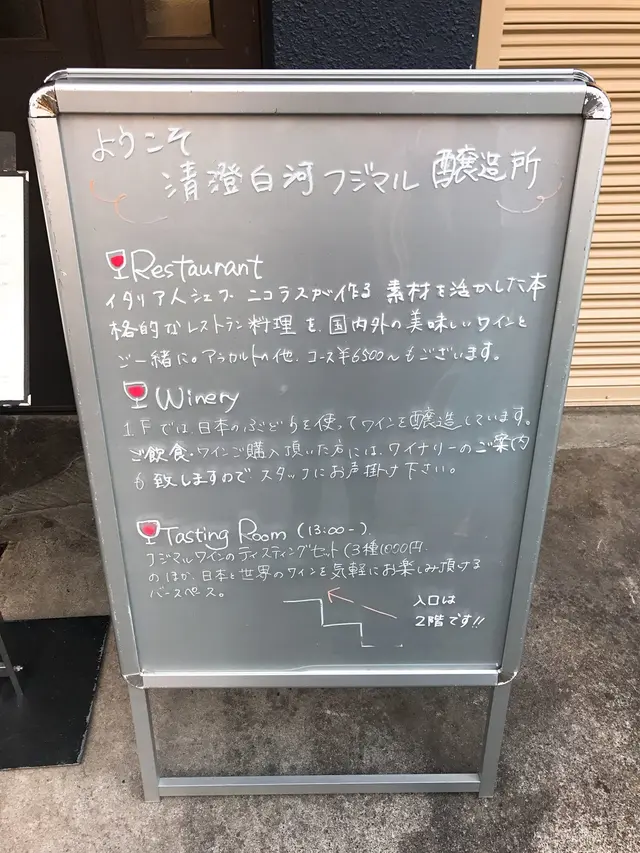 ようこそ
清澄白河フジマル 醸造所
Restaurant
イタリア人シェフ ニコラスが作る 素材を活かした本
格的なレストラン料理を、国内外の美味しいワインと
ご一緒に。アラカルトの他、コース¥6500〜もございます。
Winery
1Fでは、日本のぶどうを使ってワインを醸造しています。
ご飲食・ワインご購入頂いた方には、ワイナリーのご案内
も致しますので スタッフにお声掛け下さい。
Tasting Room (13:00-)
フジマルワインのテイスティングセット(3種1000円、
のほか、日本と世界のワインを気軽にお楽しみ頂ける
バースペス。
入口は
2階です!!